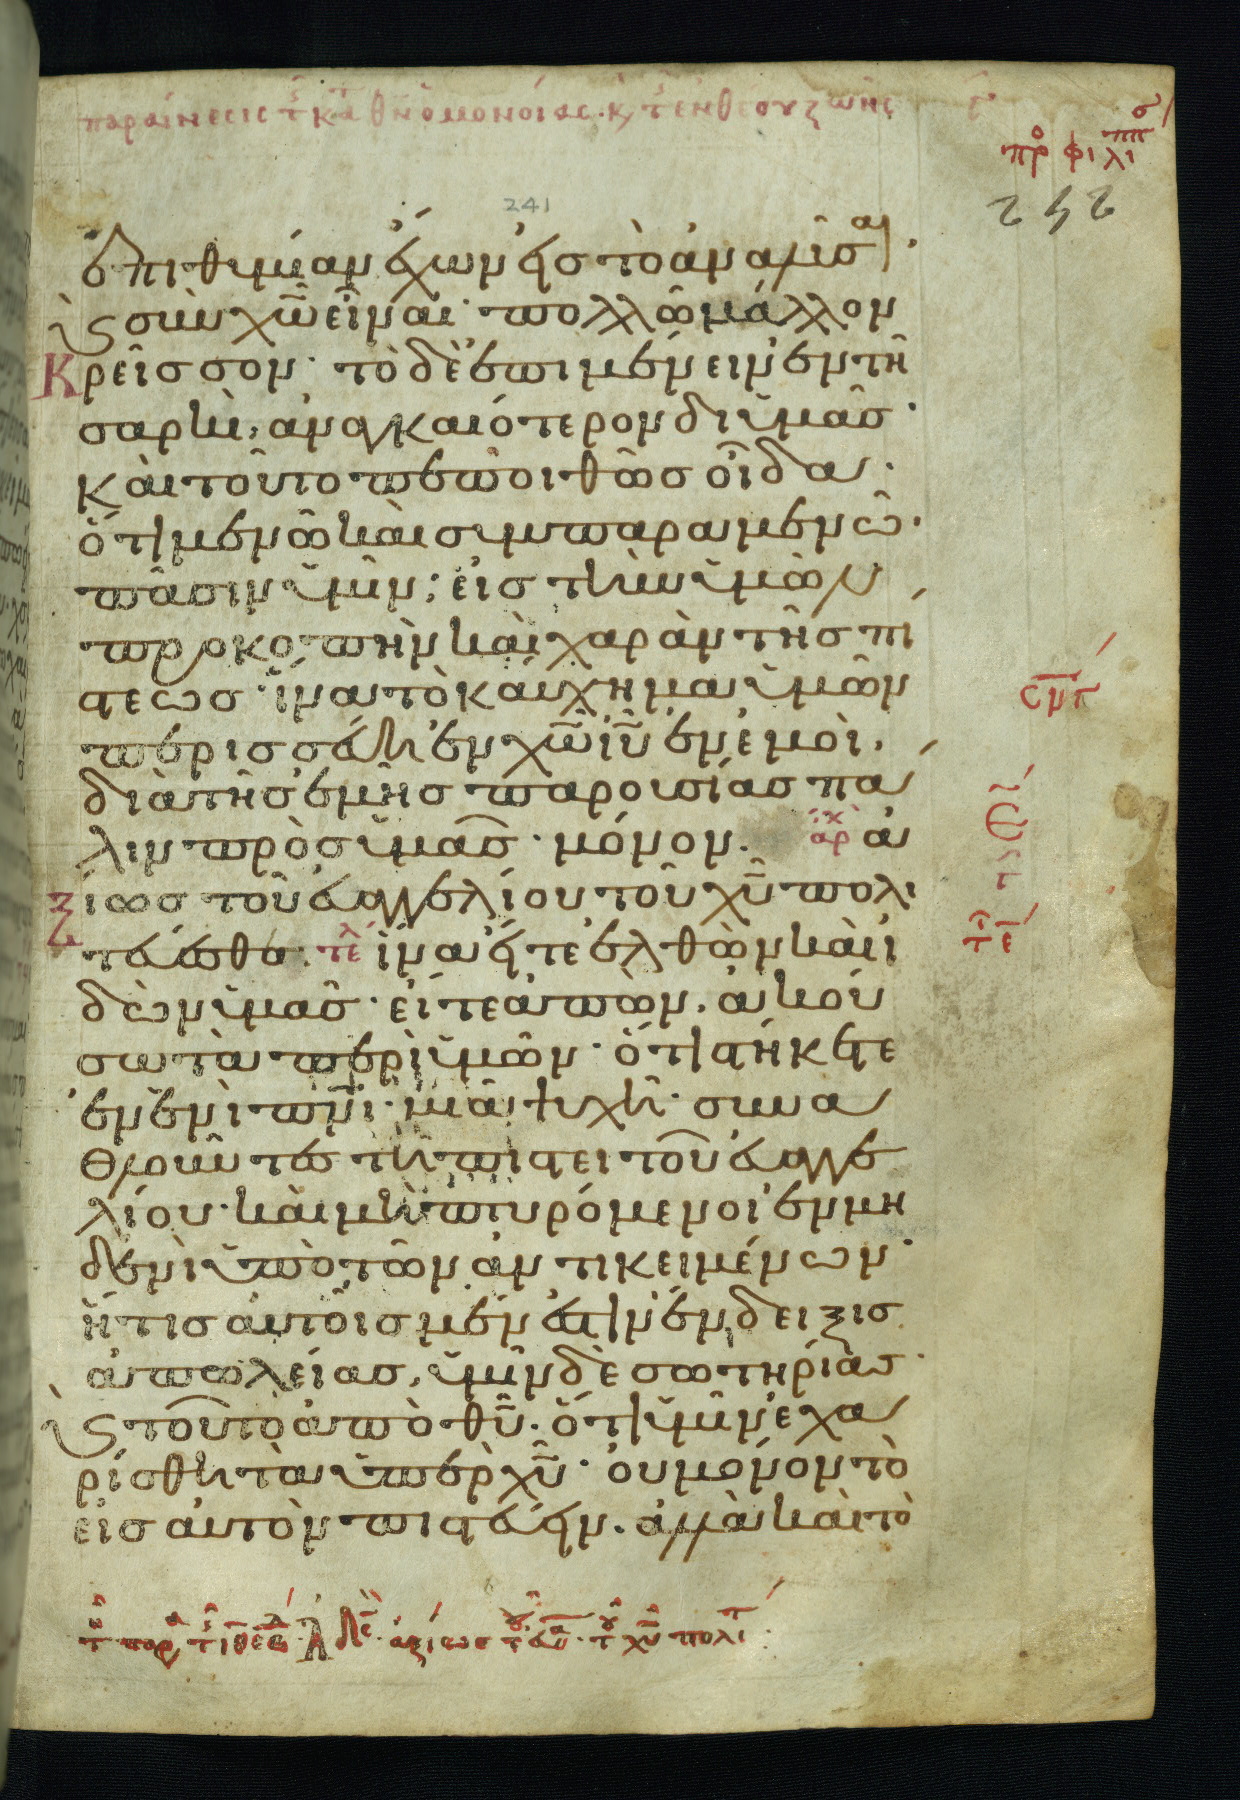 παραίνεσις τῆς κατὰ θν ὁμονοίας· κ τῆς ἐνθέου ζωῆς
πρ φιλιππ
242
241
ἐπιθυμίαν ἔχων εἰς τὸ ἀναλῦσαι,
κ σὺν χω εἶναι· πολλῶ μᾶλλον
κρεῖσσον· τὸ δὲ ἐπιμένειν ἐν τῆ
σαρκὶ, ἀναγκαιότερον δι ὑμᾶς·
καὶ τοῦτο πεποιθὼς οἶδα·
ὅτι μενῶ καὶ συμπαραμενῶ·
πᾶσιν ὑμῖν; εἰς τὴν ὑμῶν
προκοπὴν καὶ χαρὰν τῆς πί
στεως· ἵνα τὸ καύχημα ὑμῶν
περισσεύη ἐν χω ιυ ἐν ἐμοὶ,
διὰ τῆς ἐμῆς παρουσίας πά
λιν πρὸς ὑμᾶς· μόνον. αρχ ἀ
ξίως τοῦ εὐαγγελίου τοῦ χυ πολι
τεύεσθε· τελ ἵνα εἴτε ἐλθὼν καὶ ἰ
δὼν ὑμᾶς· εἴτε ἀπὼν, ἀκού
σω τὰ περὶ ὑμῶν· ὅτι στήκετε
ἐν ἑνὶ πνι· μιᾶ ψυχῆ· συνα
θλοῦντες τῆ πίστει τοῦ εὐαγγε
λίου· καὶ μὴ πτυρόμενοι ἐν μη
δενὶ ὑπὸ τῶν ἀντικειμένων·
ἥτις αὐτοῖς μέν ἐστιν ἔνδειξις
ἀπωλείας, ὑμῖν δὲ σωτηρίας·
κ τοῦτο ἀπὸ θυ· ὅτι ὑμῖν ἐχα
ρίσθη τὸ ὑπὲρ χυ· οὐ μόνον τὸ
εἰς αὐτὸν πιστεύειν. ἀλλὰ καὶ τὸ
ἀξίως τοῦ εὐα· τοῦ χυ πολιτ